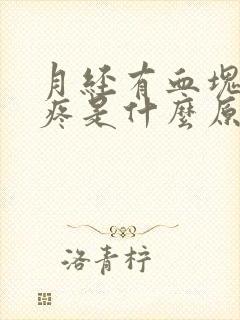 月經有血塊
疼是什麼原
洛青柠